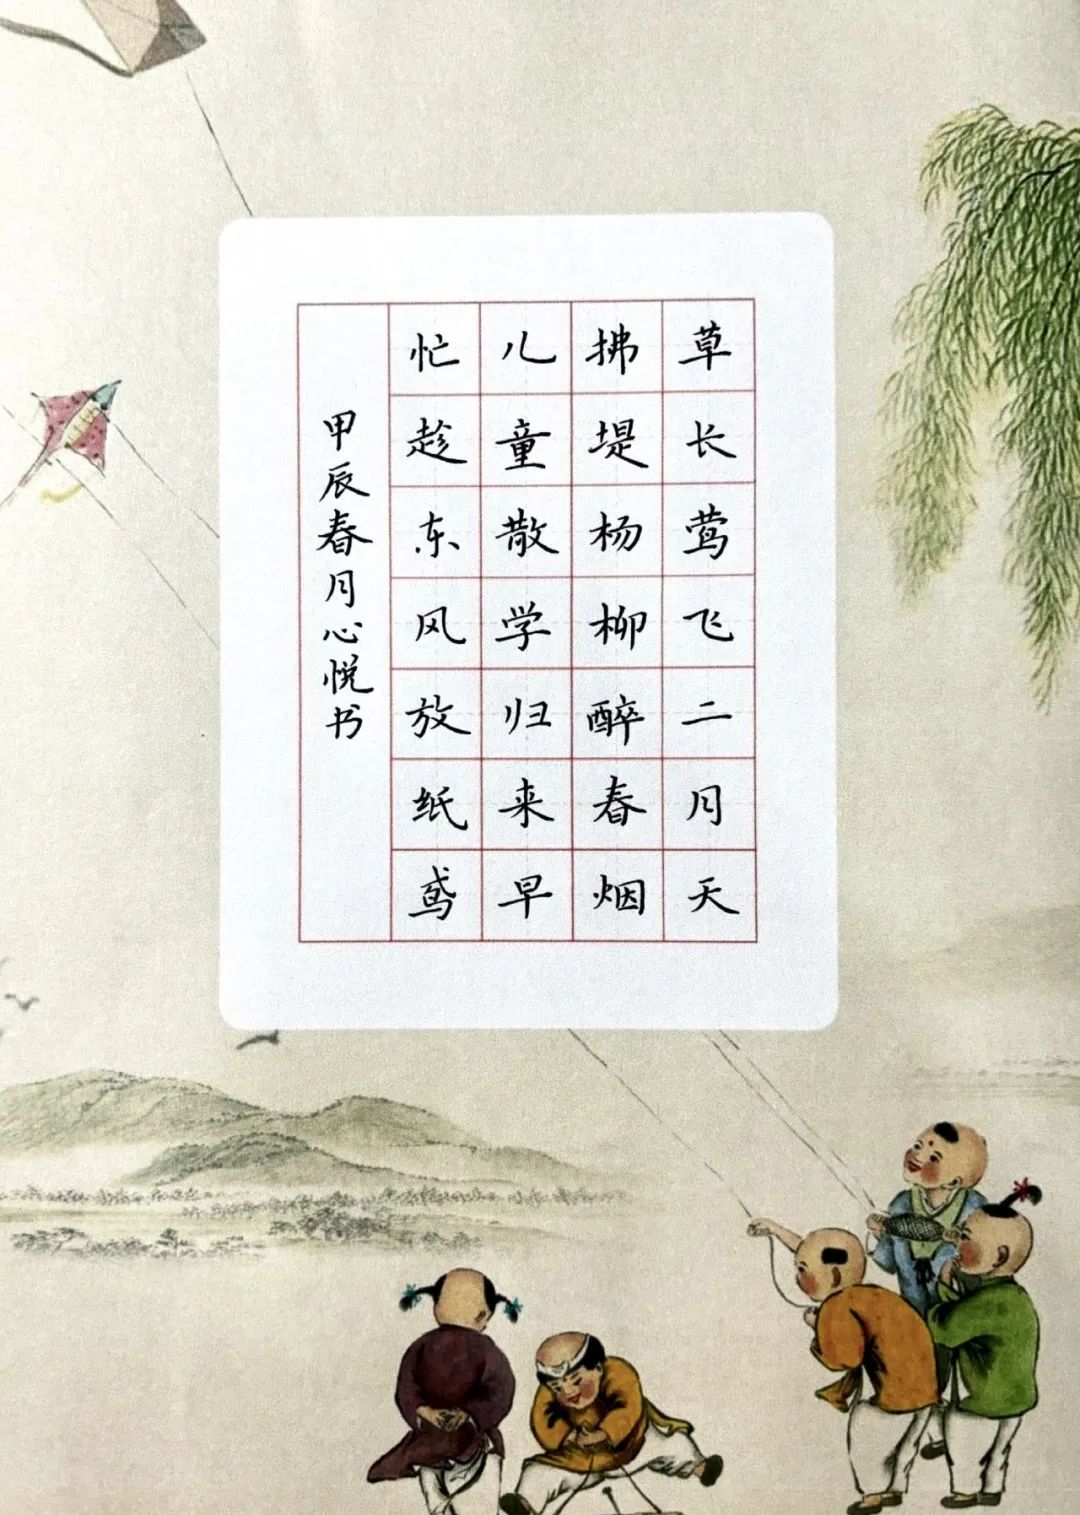 草长莺飞二月天
拂堤杨柳醉春烟
儿童散学归来早
忙趁东风放纸鸢
甲辰春月心悦书